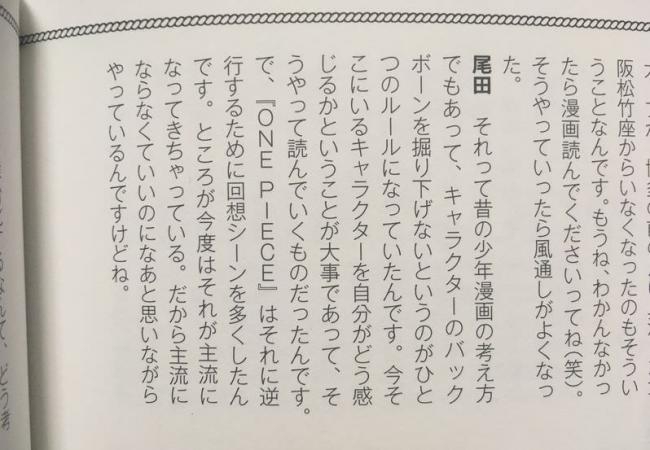 阪松竹座からいなくなったのもそうい
うことなんです。もうね、わかんなかっ
たら漫画読んでくださいってね（笑）。
そうやっていったら風通しがよくなっ
た。
尾田　それって昔の少年漫画の考え方
でもあって、キャラクターのバック
ボーンを掘り下げないというのがひと
つのルールになっていたんです。今そ
こにいるキャラクターを自分がどう感
じるかということが大事であって、そ
うやって読んでいくものだったんです。
で、『ONE PIECE』はそれに逆
行するために回想シーンを多くしたん
です。ところが今度はそれが主流に
なってきちゃっている。だから主流に
ならなくていいのになあと思いながら
やっているんですけどね。